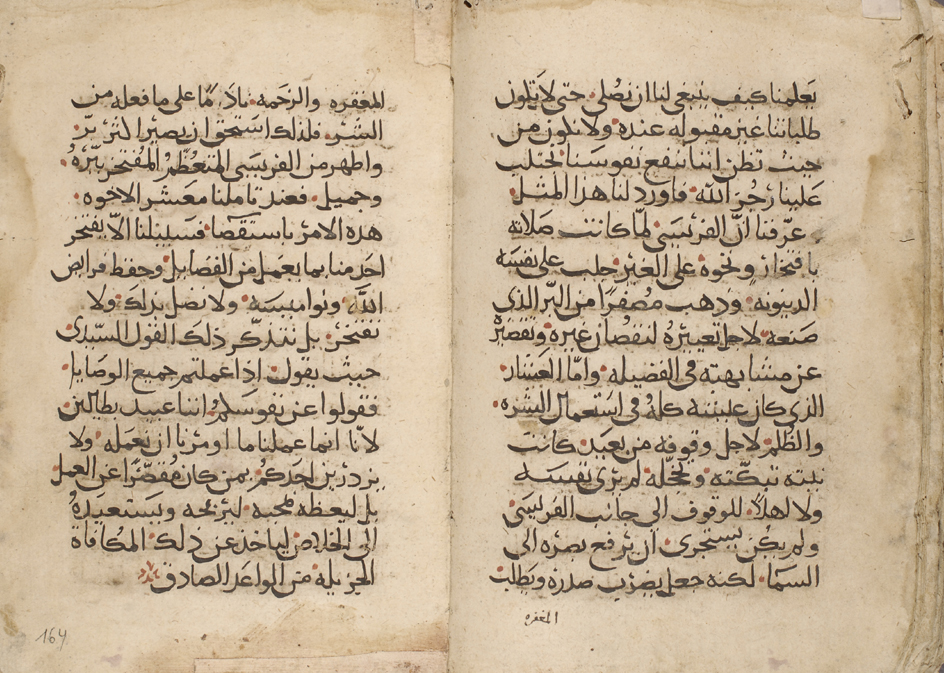 يَعلمنا كيف ينبغي لنا ان نصُلي حتى لا تكون
طلباتنا غير مقبوله عنده ولا نكون من
حيث نظن اننا ننفع نفوسنا نجتلب
علينا رُجز الله فاورد لنا هذا المثل
عرّفنا انّ الفريسَي لمّا كانت صَلاته
بافتخارٍ ونخوه على الغير جلب على نفسَه
الدينونه وذهب مُصفرًا من البّر الذي
صَنعه لاجل تعييرهُ لنقصان غيره وتقصيرهُ
عن مشابهته في الفضيله وامّا العَشار
الذي كان عيشته كلهُ في استعمال الشره
والظُلم لاجل وقوفه من بعيد كانت
نيته تبكّته وتخجّله لم يرَى نفسَه
ولا اهلاً للوقوف الى جانب الفريسَي
ولم يكن يستجرى ان يرفع بصره الى
السَما لكنه جعل يضرب صدره ويطلب
المغفره
المغفره والرَحمه نادمًا على ما فعله من
الشَر فلذلك استَحق ان يصير اكثر برّ
واطهر من الفريسَي المتعظّم المفتخر ببّرهُ
وجميل فعند تاملنا معَشر الاخوه
هذه الامر باستقصا فسبيلنا الاّ يفتخر
احد منا بما يعمل من الفضايل وحفظ فرايض
الله ونواميسَه ولا نضل بذلك ولا
نفتخر بل نتذكّر ذلك القول السَيّدي
حيث يقول اذا عملتم جميع الوصايا
فقولوا عن نفوسَكم اننا عبيد بطالين
لانّا انما عملنا ما اومرنا ان نعَمله ولا
يزدرين احدكم بمن كان مُقصّرًا عن العمل
بل ليعظه بمحبه ليربحه ويستعيدهُ
الى الخلاص لياخذ عن ذلك المكافاة
الجزيله من الواعد الصادق
164